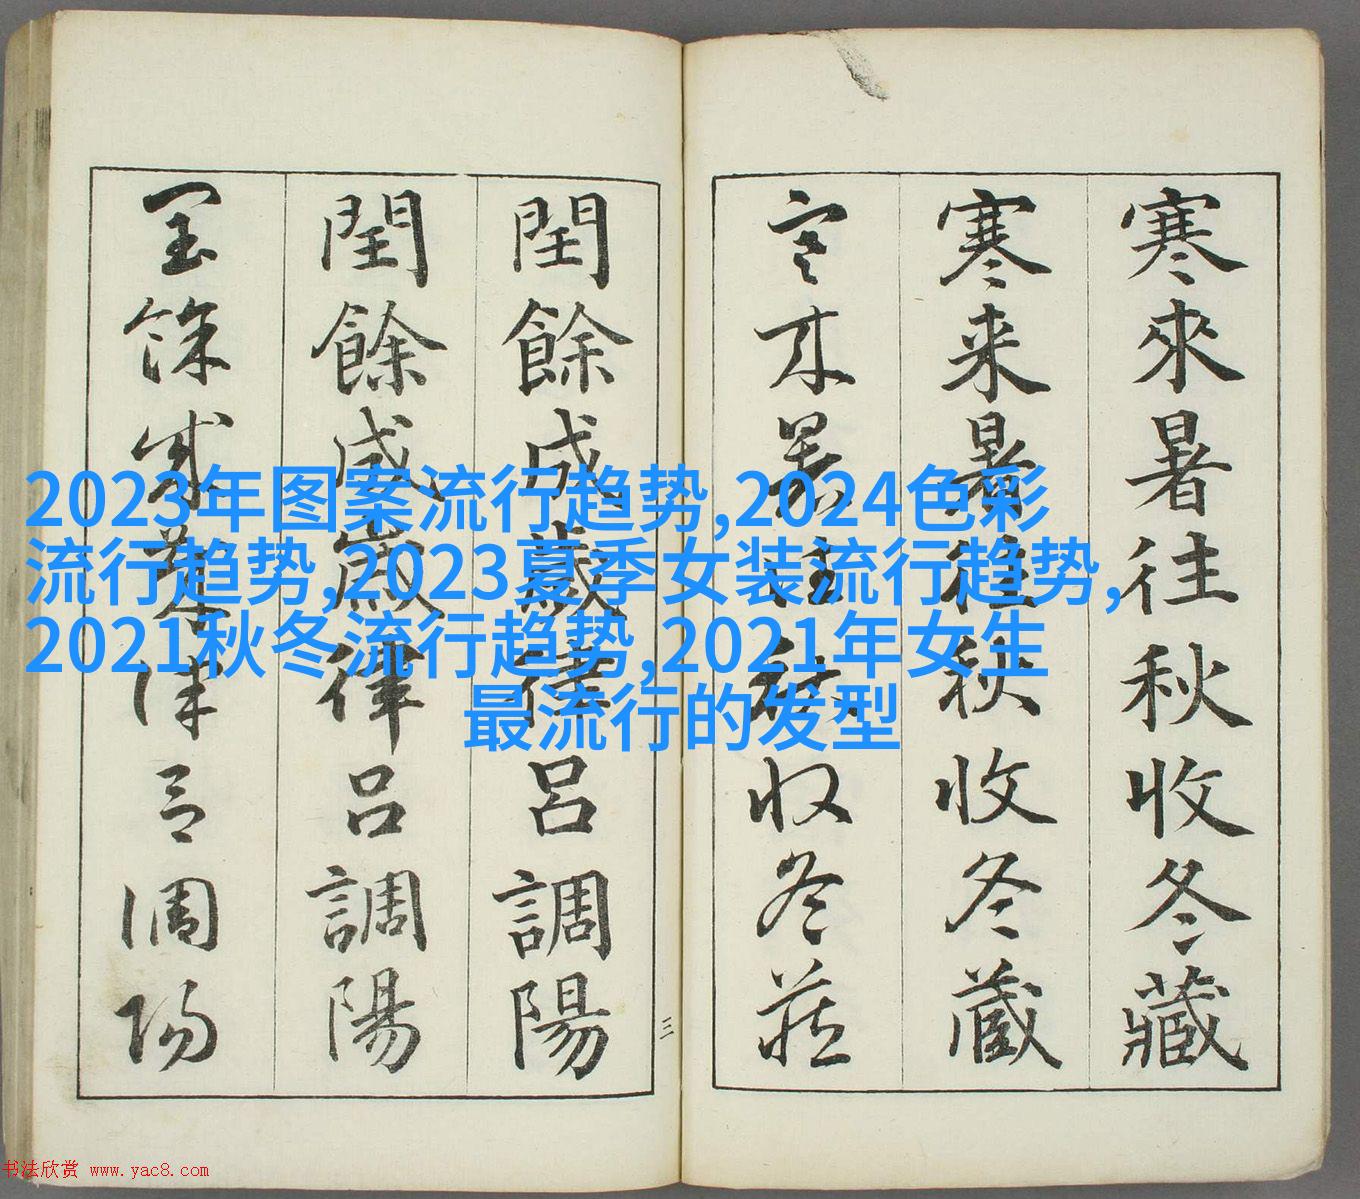 寒來暑往秋收冬藏
寒来暑往秋收冬蔵
寒来暑往秋收冬藏
三
閏餘成歲律呂調陽
閏餘成歲律呂調陽
閏餘成歲律呂調陽
2023年图案流行趋势,2024色彩
流行趋势,2023夏季女装流行趋势,
2021秋冬流行趋势,2021年女生
最流行的发型
书法欣赏 www.yac8.com